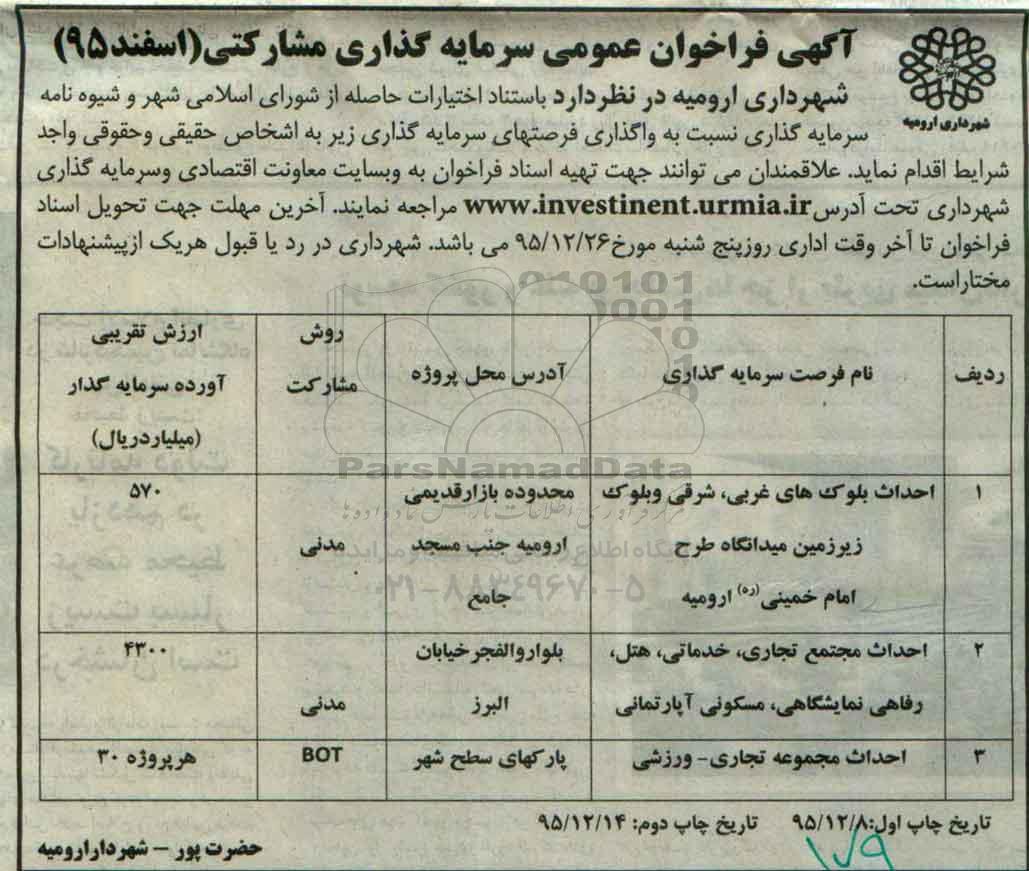 آگهی فراخوان عمومی سرمایه گذاری مشارکتی(اسفند۹۵)
شهرداری ارومیه
شهرداری ارومیه در نظردارد باستناد اختیارات حاصله از شورای اسلامی شهر و شیوه نامه
سرمایه گذاری نسبت به واگذاری فرصتهای سرمایه گذاری زیر به اشخاص حقیقی وحقوقی واجد
شرایط اقدام نماید. علاقمندان می توانند جهت تهیه اسناد فراخوان به وبسایت معاونت اقتصادی وسرمایه گذاری
شهرداری تحت آدرس www.investinent.urmia.ir مراجعه نمایند. آخرین مهلت جهت تحویل اسناد
فراخوان تا آخر وقت اداری روزپنج شنبه مورخ۹۵/۱۲/۲۶ می باشد. شهرداری در رد یا قبول هریک ازپیشنهادات
مختاراست.
ردیف نام فرصت سرمایه گذاری آدرس محل پروژه روش مشارکت ارزش تقریبی آورده سرمایه گذار (میلیاردریال)
۱ احداث بلوک های غربی، شرقی وبلوک محدوده بازارقدیمی ۵۷۰
زیرزمین میدانگاه طرح ارومیه جنب مسجد مدنی
امام خمینی(ره) ارومیه جامع
۲ احداث مجتمع تجاری، خدماتی، هتل، بلواروالفجرخیابان ۴۳۰۰
رفاهی نمایشگاهی، مسکونی آپارتمانی البرز مدنی
۳ احداث مجموعه تجاری- ورزشی پارکهای سطح شهر BOT هرپروژه ۳۰
تاریخ چاپ اول:۹۵/۱۲/۸ تاریخ چاپ دوم: ۹۵/۱۲/۱۴
حضرت پور – شهردارارومیه
۱۷۹
ParsNamadData
۰۲۱-۸۸۳۴۹۶۷۰-۵